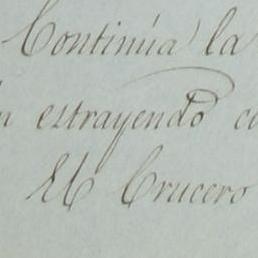 Continúa la
estrayendo
El Crucero